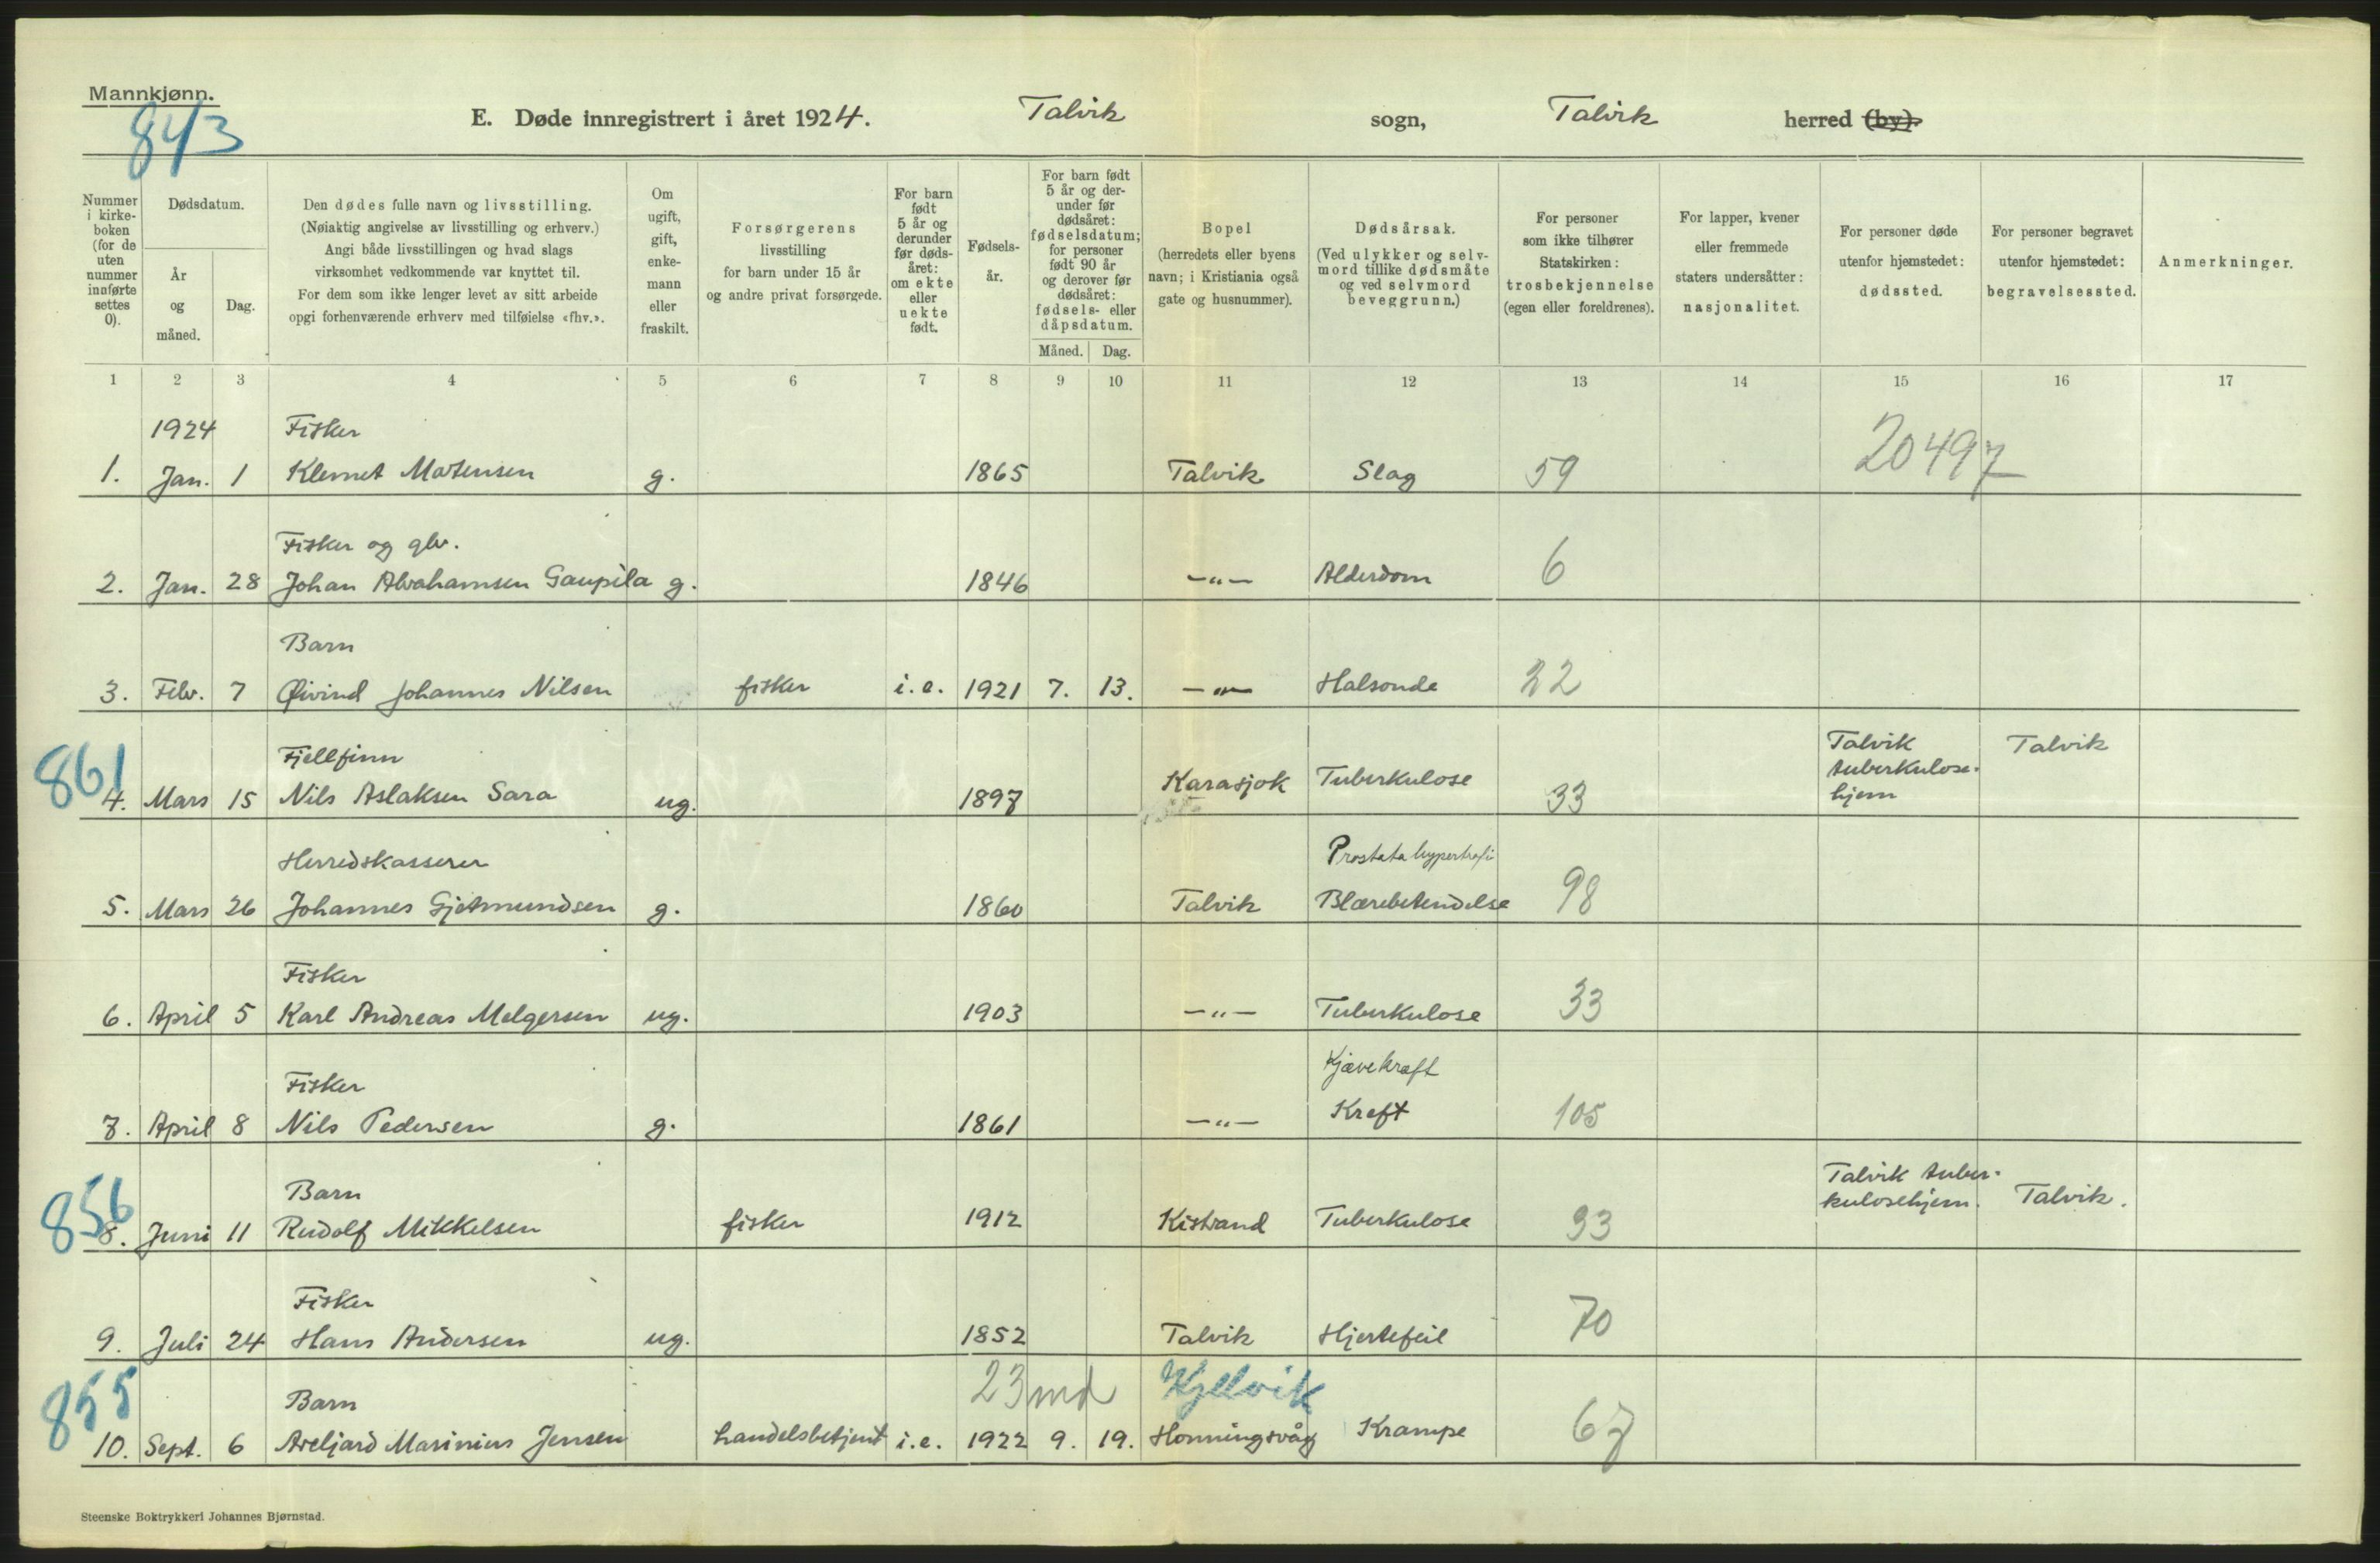 Mannkjønn.
843
E. Døde innregistrert i året 1924. Talvik sogn, Talvik herred (by).
Nummer i kirke- boken (for de uten nummer innførte settes 0).
Dødsdatum.
År og måned.
Dag.
Den dødes fulle navn og livsstilling.
(Nøiaktig angivelse av livsstilling og erhverv.)
Angi både livsstillingen og hvad slags
virksomhet vedkommende var knyttet til.
For dem som ikke lenger levet av sitt arbeide
opgi forhenværende erhverv med tilføielse «fhv.».
Om ugift, gift, enke- mann eller fraskilt.
Forsørgerens
livsstilling
for barn under 15 år
og andre privat forsørgede.
For barn født 5 år og derunder før døds- året: om ekte eller uekte født.
Fødsels- år.
For barn født 5 år og der- under før dødsåret: fødselsdatum; for personer født 90 år og derover før dødsåret: fødsels- eller dåpsdatum.
Måned. Dag.
Bopel
(herredets eller byens
navn; i Kristiania også
gate og husnummer).
Dødsårsak.
(Ved ulykker og selv-
mord tillike dødsmåte
og ved selvmord
beveggrunn.)
For personer
som ikke tilhører
Statskirken:
trosbekjennelse
(egen eller foreldrenes).
For lapper, kvener
eller fremmede
staters undersåtter:
nasjonalitet.
For personer døde
utenfor hjemstedet:
dødssted.
For personer begravet
utenfor hjemstedet:
begravelsessted.
Anmerkninger.
1 2 3 4 5 6 7 8 9 10 11 12 13 14 15 16 17
1924 Fisker
1. Jan. 1 Klemet Matensen g. 1865 Talvik Slag 59 20497
Fisker og gbr.
2. Jan. 28 Johan Abrahamsen Gaupila g. 1846 —"— Alderdom 6
Barn
3. Febr. 7 Øivind Johannes Nilsen fisker i.e. 1921 7. 13. —"— Halsonde 22
861
Fjellfinn
4. Mars 15 Nils Aslaksen Sara ug. 1897 Karasjok Tuberkulose 33 Talvik tuberkulose- hjem Talvik
Herredskasserer Prostatahypertrofi
5. Mars 26 Johannes Gjetmundsen g. 1860 Talvik Blærebetendelse 98
Fisker
6. April 5 Karl Andreas Melgersen ug. 1903 —"— Tuberkulose 33
Fisker Kjævekræft
7. April 8 Nils Pedersen g. 1861 —"— Kreft 105
856
Barn
8. Juni 11 Rudolf Mikkelsen fisker 1912 Kistrand Tuberkulose 33 Talvik tuber- kulosehjem. Talvik.
Fisker
9. Juli 24 Hans Andersen ug. 1852 Talvik Hjertefeil 70
855
Barn 23 md Kjelvik
10. Sept. 6 Areljard Marinius Jensen handelsbetjent i.e. 1922 9. 19. Honningsvåg Krampe 67
Steenske Boktrykkeri Johannes Bjørnstad.